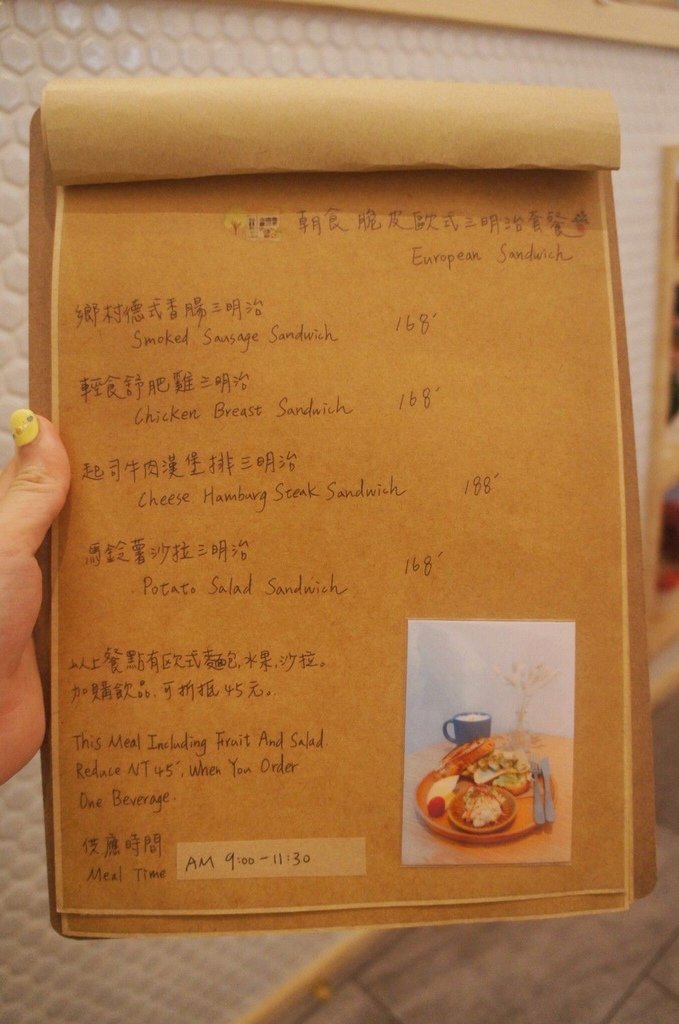 朝食 脆皮歐式三明治套餐
European Sandwich
鄉村德式香腸三明治
Smoked Sausage Sandwich 168'
輕食舒肥雞三明治
Chicken Breast Sandwich 168'
起司牛肉漢堡排三明治
Cheese Hamburg Steak Sandwich 188'
馬鈴薯沙拉三明治
Potato Salad Sandwich 168'
以上餐點有歐式麵包,水果,沙拉。
加購飲品,可折抵45元。
This Meal Including Fruit And Salad.
Reduce NT45', When You Order
One Beverage.
供應時間
Meal Time AM 9:00-11:30